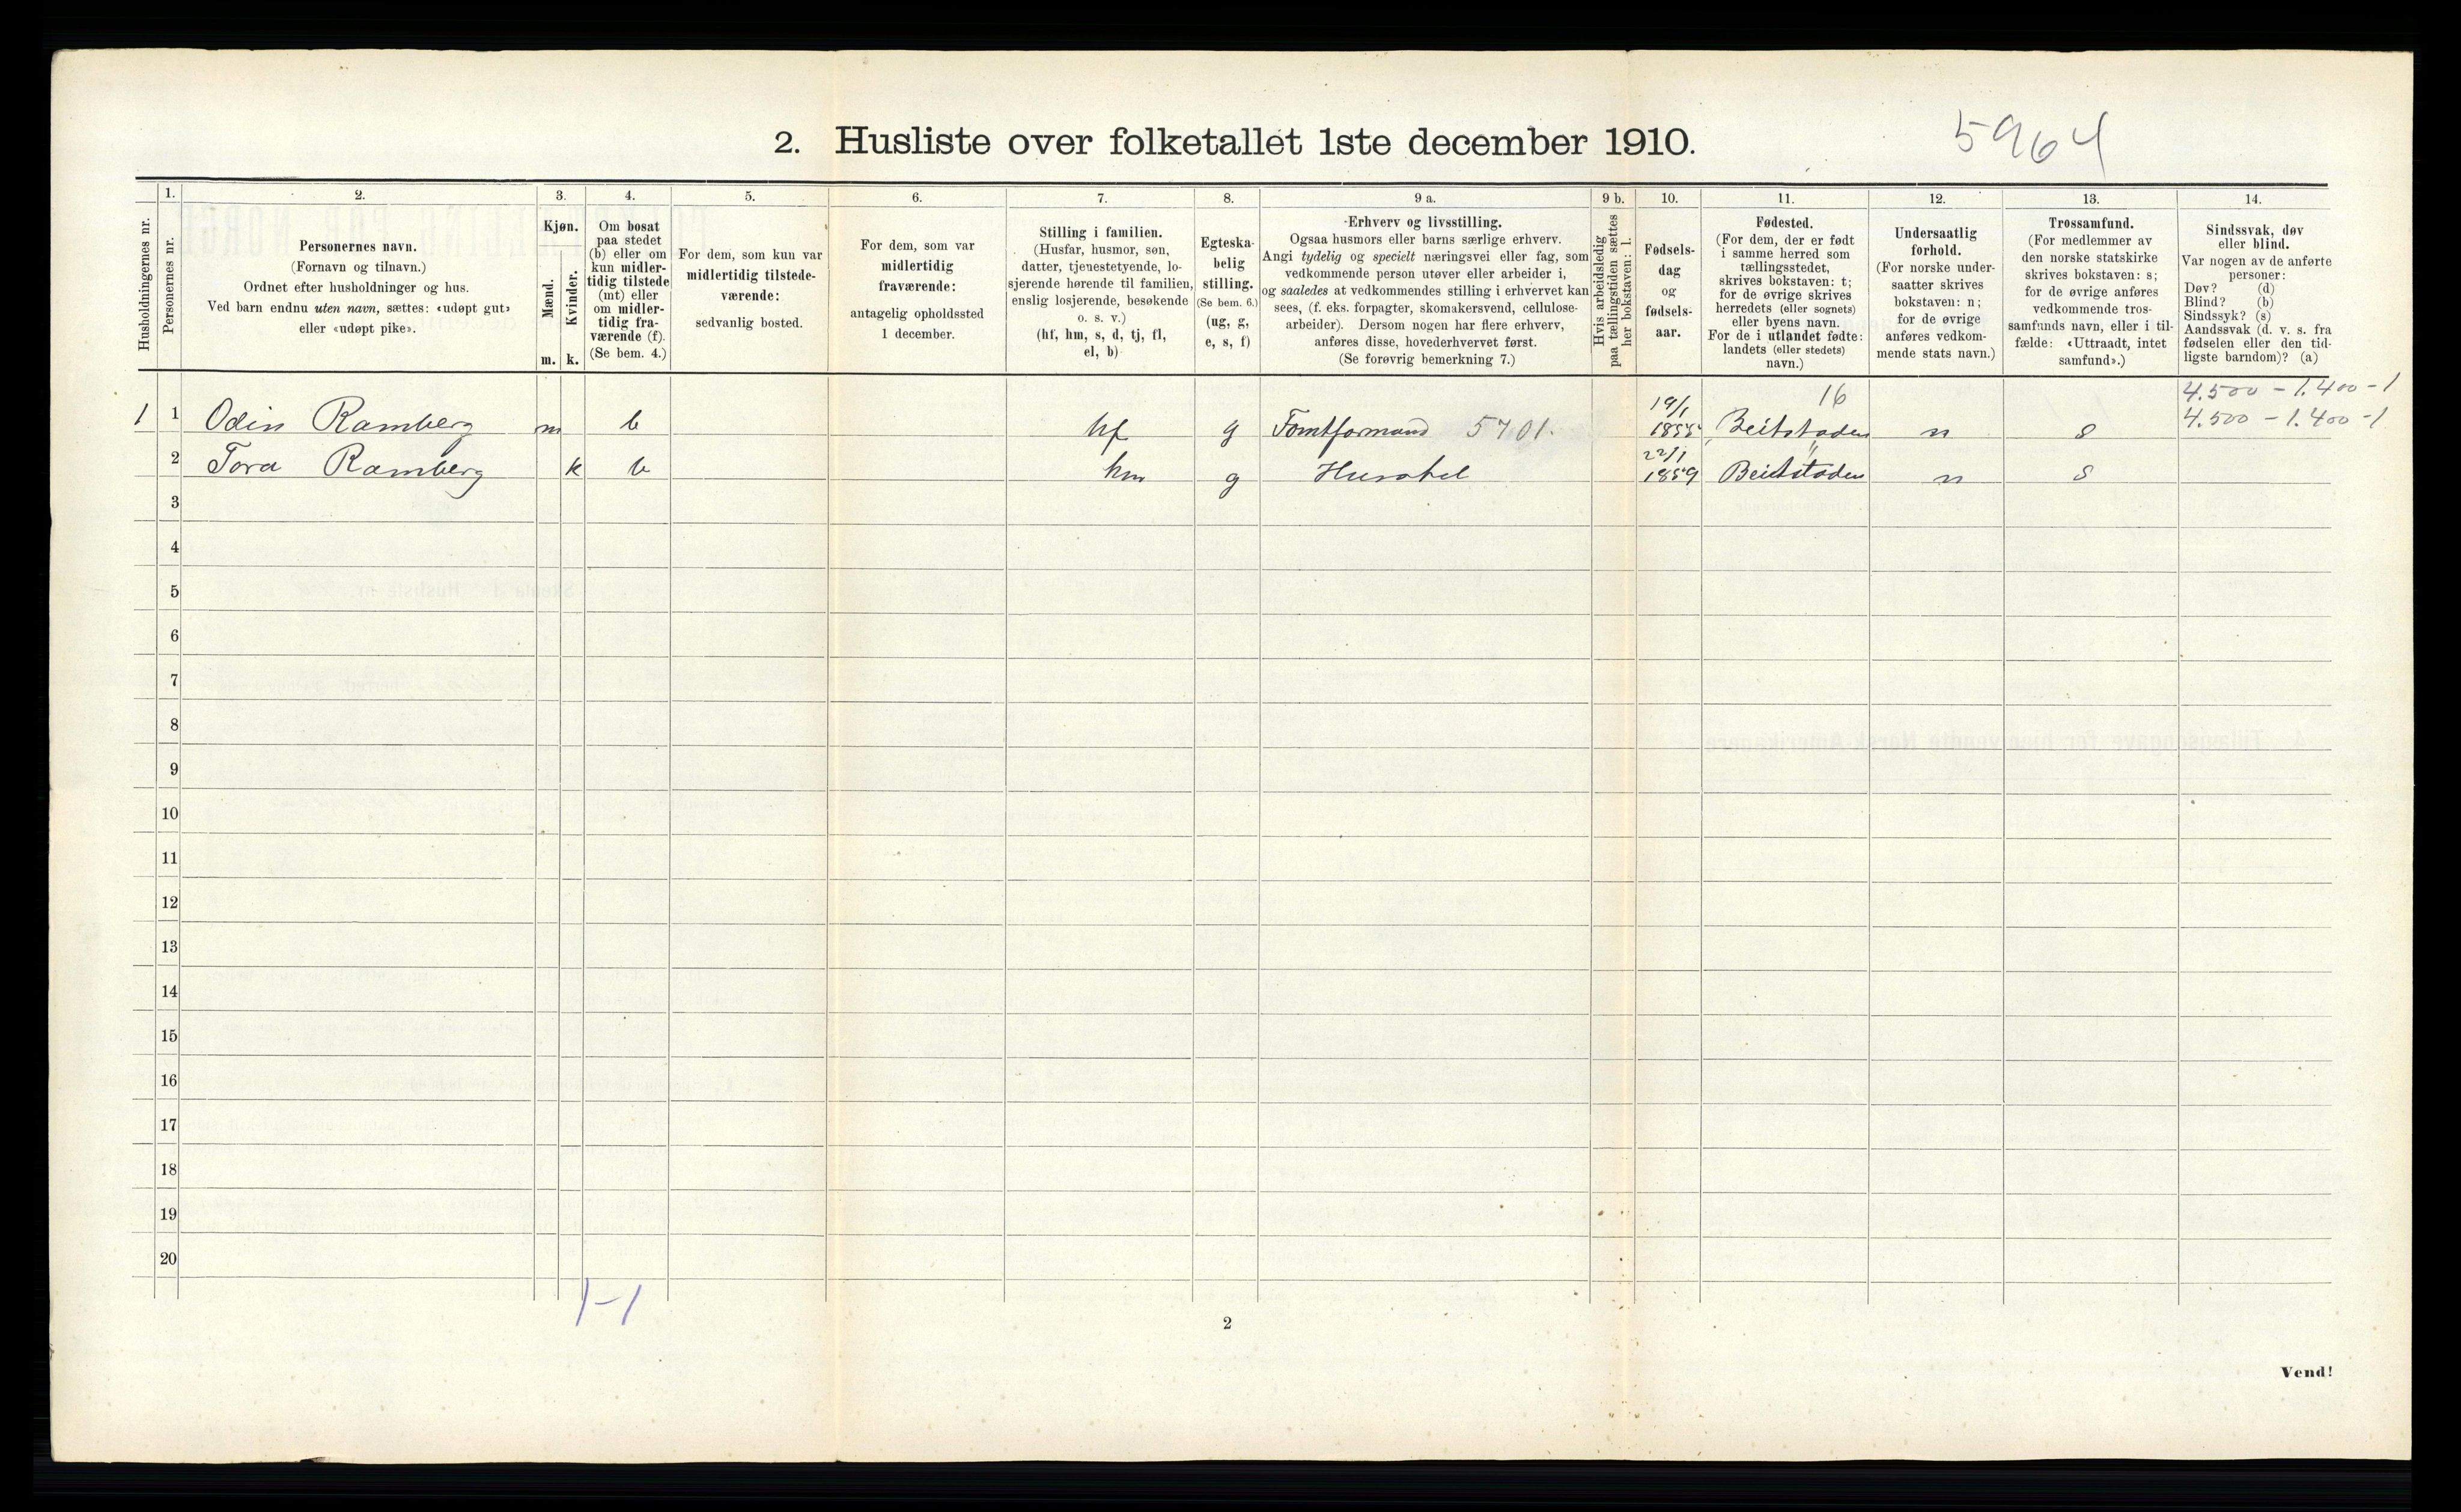 2. Husliste over folketallet 1ste december 1910.
5964
Husholdningernes nr.
1.
Personernes nr.
2.
Personernes navn.
(Fornavn og tilnavn.)
Ordnet efter husholdninger og hus.
Ved barn endnu uten navn, sættes: «udøpt gut»
eller «udøpt pike».
3.
Kjøn.
Mænd.
m.
Kvinder.
k.
4.
Om bosat
paa stedet
(b) eller om
kun midler-
tidig tilstede
(mt) eller
om midler-
tidig fra-
værende (f).
(Se bem. 4.)
5.
For dem, som kun var
midlertidig tilstede-
værende:
sedvanlig bosted.
6.
For dem, som var
midlertidig
fraværende:
antagelig opholdssted
1 december.
7.
Stilling i familien.
(Husfar, husmor, søn,
datter, tjenestetyende, lo-
sjerende hørende til familien,
enslig losjerende, besøkende
o. s. v.)
(hf, hm, s, d, tj, fl,
el, b)
8.
Egteska-
belig
stilling.
(Se bem. 6.)
(ug, g,
e, s, f)
9 a.
Erhverv og livsstilling.
Ogsaa husmors eller barns særlige erhverv.
Angi tydelig og specielt næringsvei eller fag, som
vedkommende person utøver eller arbeider i,
og saaledes at vedkommendes stilling i erhvervet kan
sees, (f. eks. forpagter, skomakersvend, cellulose-
arbeider). Dersom nogen har flere erhverv,
anføres disse, hovederhvervet først.
(Se forøvrig bemerkning 7.)
9 b.
Hvis arbeidsledig
paa tællingstiden sættes
her bokstaven: l.
10.
Fødsels-
dag
og
fødsels-
aar.
11.
Fødested.
(For dem, der er født
i samme herred som
tællingsstedet,
skrives bokstaven: t;
for de øvrige skrives
herredets (eller sognets)
eller byens navn.
For de i utlandet fødte:
landets (eller stedets)
navn.)
12.
Undersaatlig
forhold.
(For norske under-
saatter skrives
bokstaven: n;
for de øvrige
anføres vedkom-
mende stats navn.)
13.
Trossamfund.
(For medlemmer av
den norske statskirke
skrives bokstaven: s;
for de øvrige anføres
vedkommende tros-
samfunds navn, eller i til-
fælde: «Uttraadt, intet
samfund».)
14.
Sindssvak, døv
eller blind.
Var nogen av de anførte
personer:
Døv? (d)
Blind? (b)
Sindssyk? (s)
Aandssvak (d. v. s. fra
fødselen eller den tid-
ligste barndom)? (a)
4.500 - 1.400 - 1
1 1 Odin Ramberg m b hf g Tomtformand 5701. 19/1 1855 16 Beitstaden n s 4.500 - 1.400 - 1
2 Tora Ramberg k b hm g Husstel 22/1 1859 " Beitstaden n s
3
4
5
6
7
8
9
10
11
12
13
14
15
16
17
18
19
20
1-1
2
Vend!